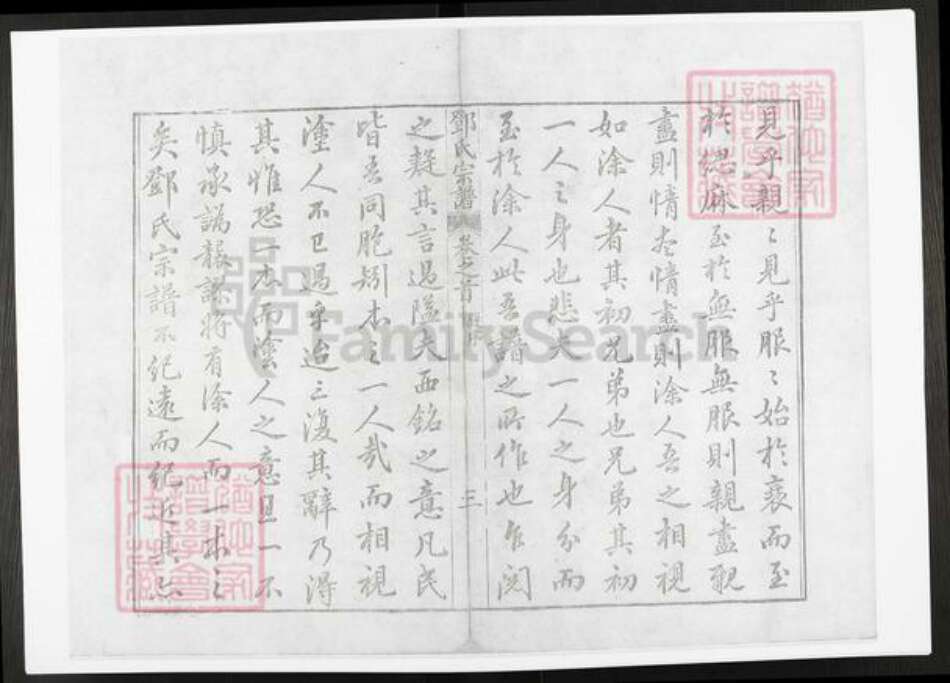 見乎親〻見乎服〻始於衰而至
於緦麻至於無服無服則親盡親
盡則情盡情盡則涂人吾之相視
如涂人者其初兄弟也兄弟其初
一人之身也悲夫一人之身分而
至於涂人此吾譜之所作也乍閱
鄧氏宗譜 卷之首 三
之疑其言過隘夫西銘之意凡民
皆吾同胞矧本之一人哉而相視
塗人不已過乎迨三復其辭乃得
其惟恐一本而塗人之意且一不
慎承譌襲謬將有涂人而一本之
矣鄧氏宗譜不紀遠而紀近其亦
FamilySearch